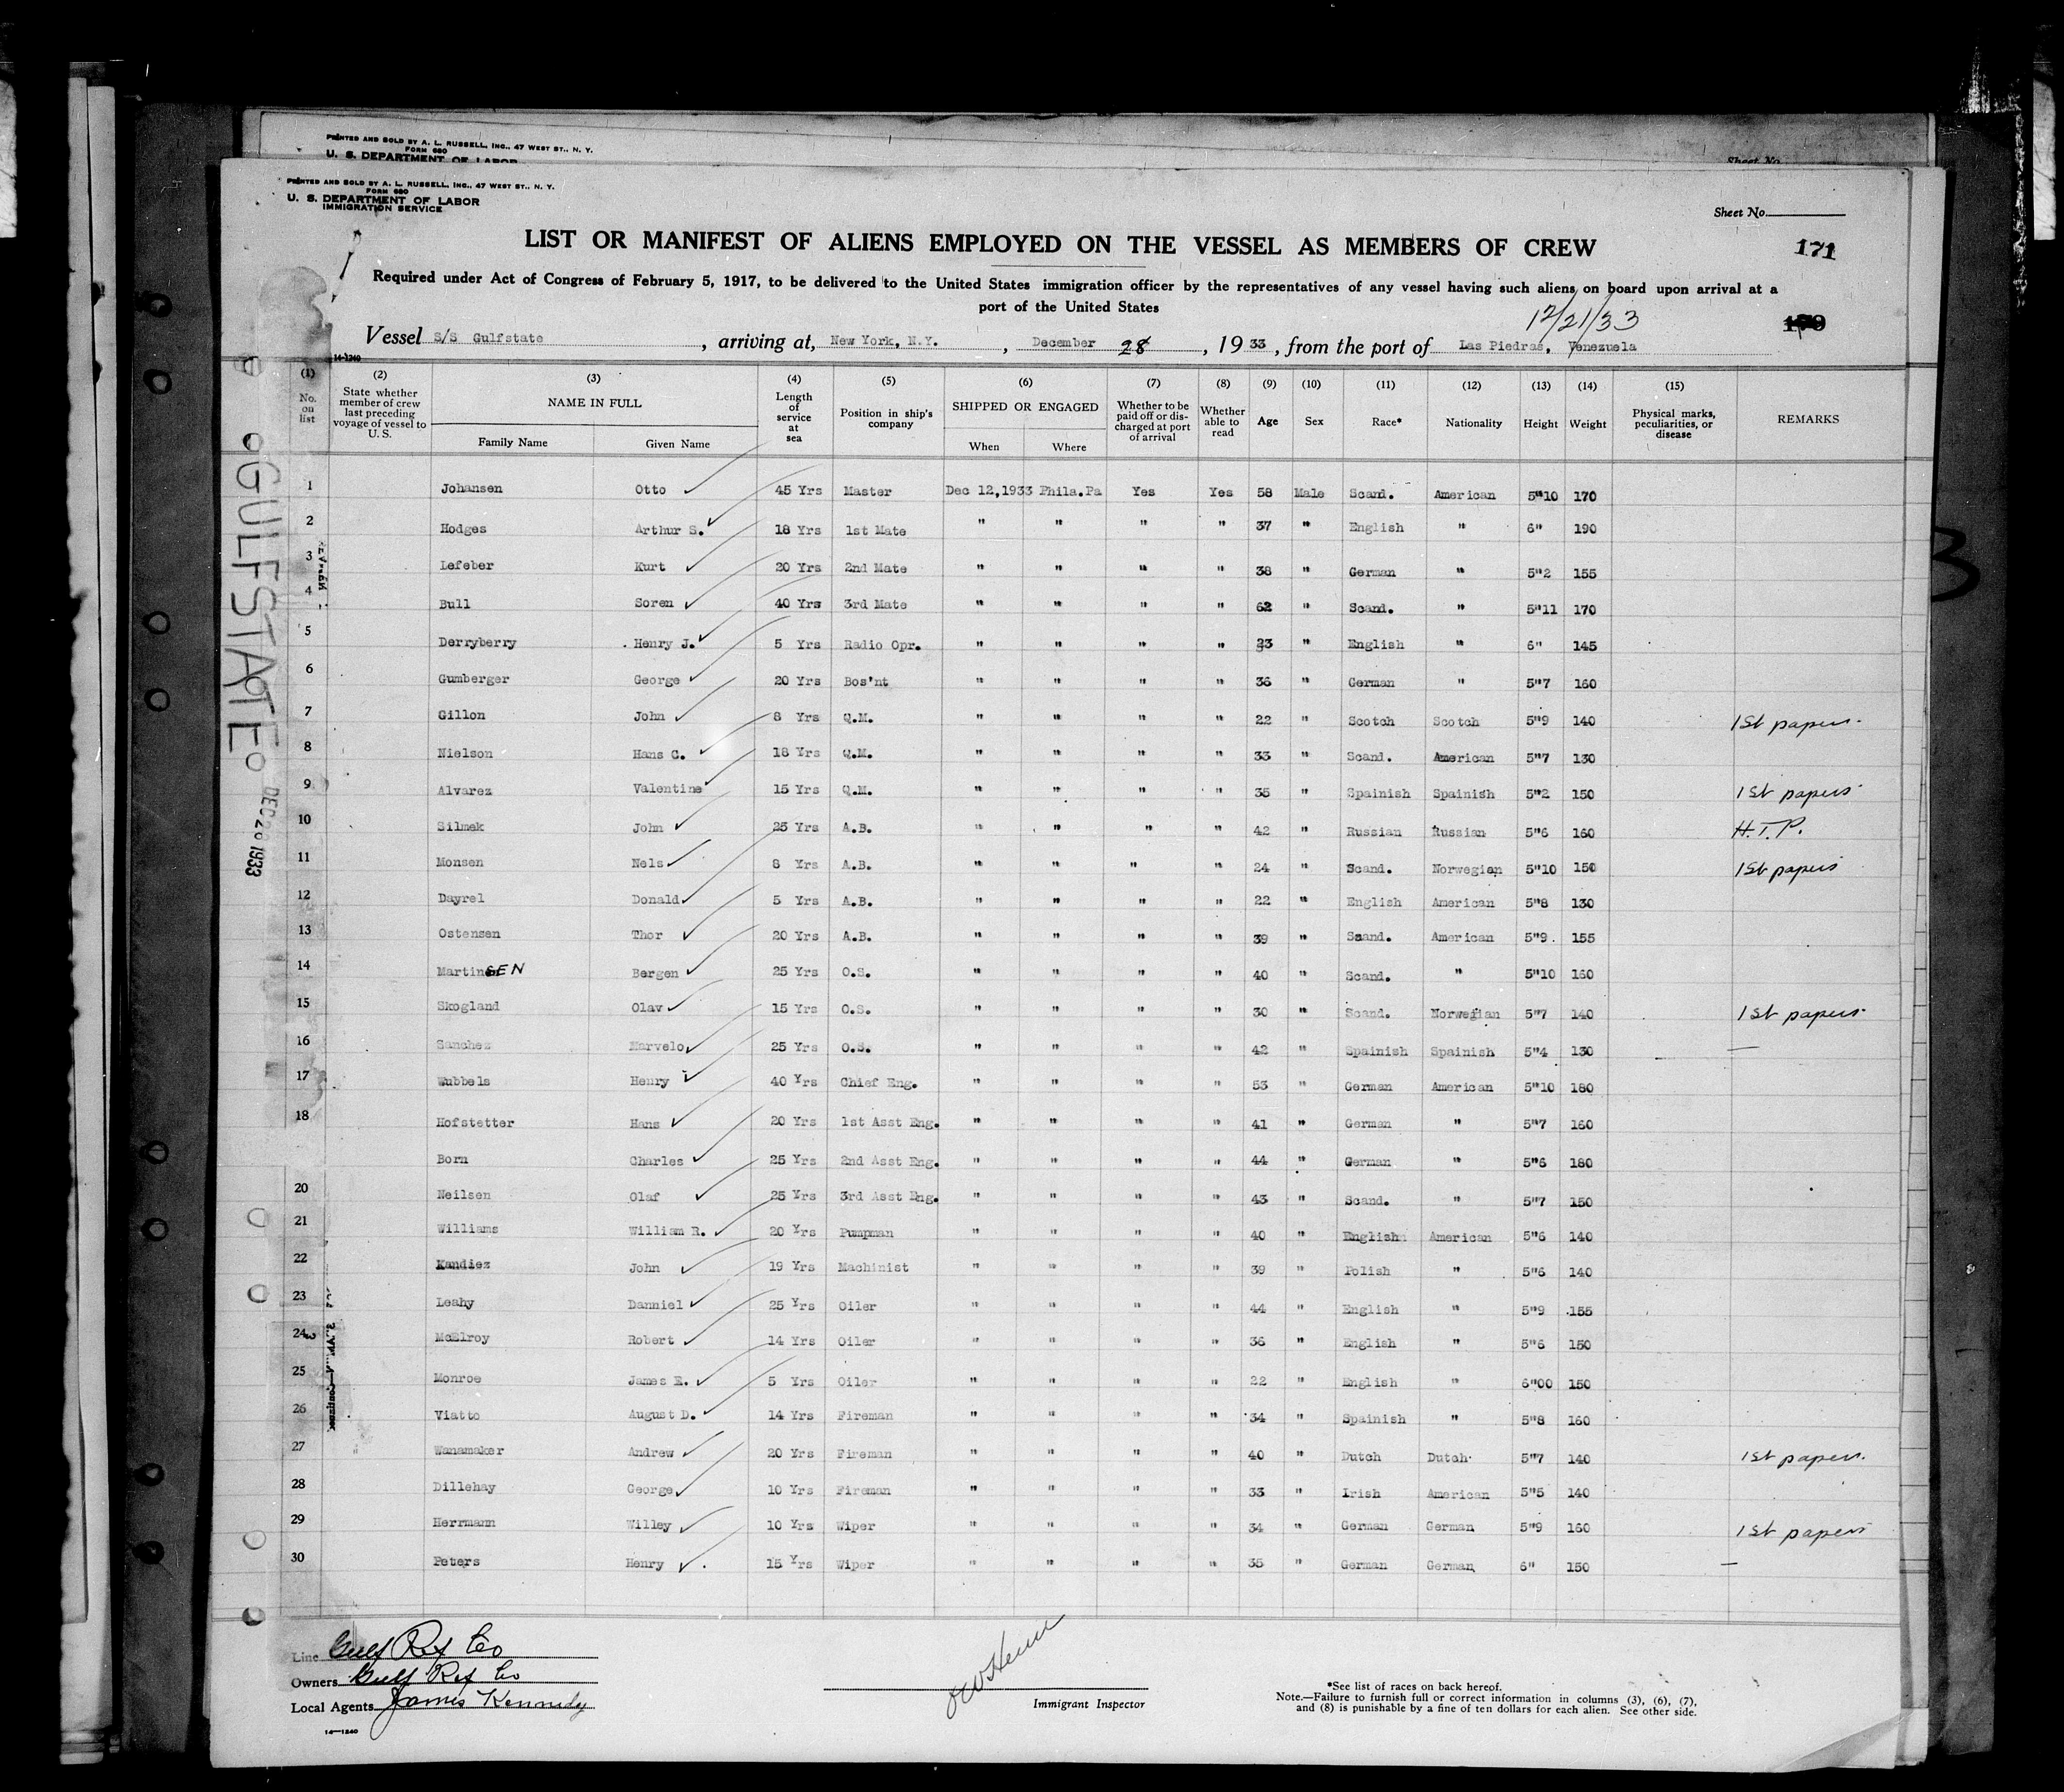 PRINTED AND SOLD BY A. L. RUSSELL, INC., 47 WEST ST., N. Y.
FORM 680
U. S. DEPARTMENT OF LABOR
Sheet No.
PRINTED AND SOLD BY A. L. RUSSELL, INC., 47 WEST ST., N. Y.
FORM 680
U. S. DEPARTMENT OF LABOR
IMMIGRATION SERVICE
Sheet No.
LIST OR MANIFEST OF ALIENS EMPLOYED ON THE VESSEL AS MEMBERS OF CREW
171
Required under Act of Congress of February 5, 1917, to be delivered to the United States immigration officer by the representatives of any vessel having such aliens on board upon arrival at a
port of the United States
12/21/33
Vessel S/S Gulfstate, arriving at, New York, N.Y., December 28, 1933, from the port of Las Piedras, Venezuela
14-1240
(1) (2) (3) (4) (5) (6) (7) (8) (9) (10) (11) (12) (13) (14) (15)
No. on list State whether member of crew last preceding voyage of vessel to U. S. NAME IN FULL Length of service at sea Position in ship's company SHIPPED OR ENGAGED Whether to be paid off or discharged at port of arrival Whether able to read Age Sex Race* Nationality Height Weight Physical marks, peculiarities, or disease REMARKS
Family Name Given Name When Where
1 Johansen Otto 45 Yrs Master Dec 12,1933 Phila.Pa Yes Yes 58 Male Scand. American 5"10 170
2 Hodges Arthur S. 18 Yrs 1st Mate " " " " 37 " English " 6" 190
3 Lefeber Kurt 20 Yrs 2nd Mate " " " " 38 " German " 5"2 155
4 Bull Soren 40 Yrs 3rd Mate " " " " 62 " Scand. " 5"11 170
5 Derryberry Henry J. 5 Yrs Radio Opr. " " " " 23 " English " 6" 145
6 Gumberger George 20 Yrs Bos'nt " " " " 36 " German " 5"7 160
7 Gillon John 8 Yrs Q.M. " " " " 22 " Scotch Scotch 5"9 140 1st papers.
8 Nielson Hans C. 18 Yrs Q.M. " " " " 33 " Scand. American 5"7 130
9 Alvarez Valentine 15 Yrs Q.M. " " " " 35 " Spainish Spainish 5"2 150 1st papers
10 Silmek John 25 Yrs A.B. " " " " 42 " Russian Russian 5"6 160 H.T.P.
11 Monsen Nels 8 Yrs A.B. " " " " 24 " Scand. Norwegian 5"10 150 1st papers
12 Dayrel Donald 5 Yrs A.B. " " " " 22 " English American 5"8 130
13 Ostensen Thor 20 Yrs A.B. " " " " 39 " Scand. American 5"9. 155
14 MartinSEN Bergen 25 Yrs O.S. " " " " 40 " Scand. " 5"10 160
15 Skogland Olav 15 Yrs O.S. " " " " 30 " Scand. Norwegian 5"7 140 1st papers.
16 Sanchez Marvelo 25 Yrs O.S. " " " " 42 " Spainish Spainish 5"4 130 —
17 Wubbels Henry 40 Yrs Chief Eng. " " " " 53 " German American 5"10 180
18 Hofstetter Hans 20 Yrs 1st Asst Eng. " " " " 41 " German " 5"7 160
Born Charles 25 Yrs 2nd Asst Eng. " " " " 44 " German " 5"6 180
20 Neilsen Olaf 25 Yrs 3rd Asst Eng. " " " " 43 " Scand. " 5"7 150
21 Williams William R. 20 Yrs Pumpman " " " " 40 " English American 5"6 140
22 Kandiez John 19 Yrs Machinist " " " " 39 " Polish " 5"6 140
23 Leahy Danniel 25 Yrs Oiler " " " " 44 " English " 5"9 155
24 McElroy Robert 14 Yrs Oiler " " " " 36 " English " 5"6 150
25 Monroe James E. 5 Yrs Oiler " " " " 22 " English " 6"00 150
26 Viatto August D. 14 Yrs Fireman " " " " 34 " Spainish " 5"8 160
27 Wanamaker Andrew 20 Yrs Fireman " " " " 40 " Dutch Dutch 5"7 140 1st papers.
28 Dillehay George 10 Yrs Fireman " " " " 33 " Irish American 5"5 140
29 Herrmann Willey 10 Yrs Wiper " " " " 34 " German German 5"9 160 1st papers
30 Peters Henry 15 Yrs Wiper " " " " 35 " German German 6" 150 —
GULFSTATE
DEC 28 1933
Line Gulf Ref Co
Owners Gulf Ref Co
Local Agents James Kennedy
14-1240
Immigrant Inspector
*See list of races on back hereof.
Note.—Failure to furnish full or correct information in columns (3), (6), (7),
and (8) is punishable by a fine of ten dollars for each alien. See other side.